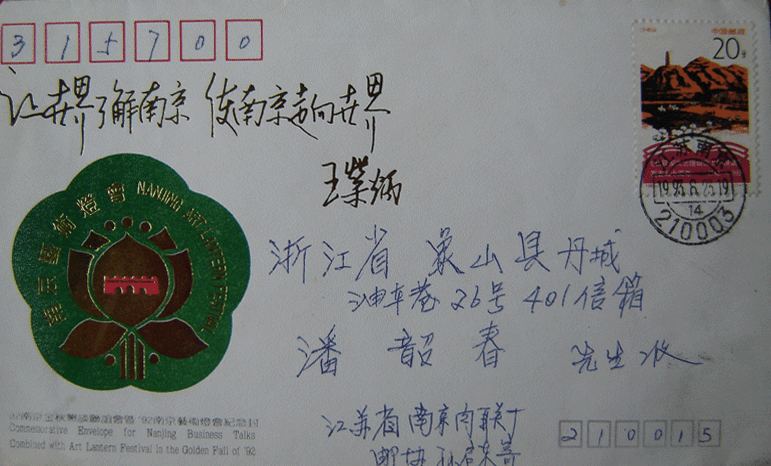 315700
让世界了解南京 使南京走向世界
王荣炳
中国邮政
20分
江苏南京
14
210003
南京艺術燈會 NANJING ART LANTERN FESTIVAL
浙江省 象山县丹城
油车巷26号401信箱
潘韶春 先生收
'92南京金秋洽談聯誼會暨'92南京藝術燈會紀念封
Commemorative Envelope for Nanjing Business Talks
Combined with Art Lantern Festival in the Golden Fall of '92
江苏省南京肉联厂
210015